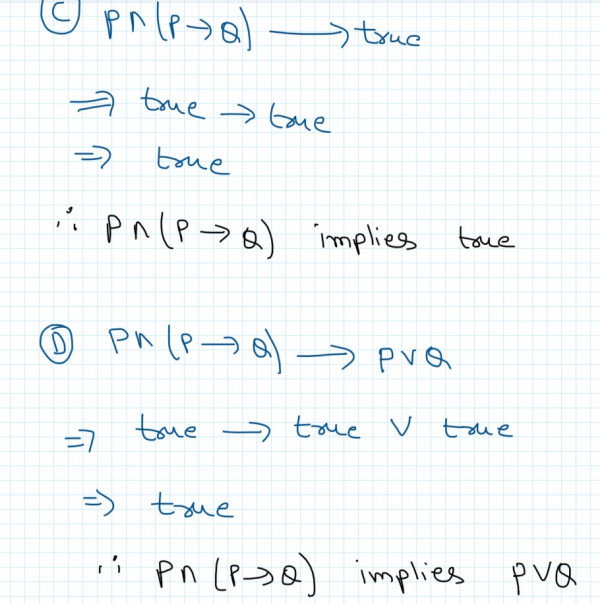 (C) P∧(P→Q) ⟶ true
⇒ true → true
⇒ true
∴ P∧(P→Q) implies true
(D) P∧(P→Q) ⟶ P∨Q
⇒ true → true ∨ true
⇒ true
∴ P∧(P→Q) implies P∨Q